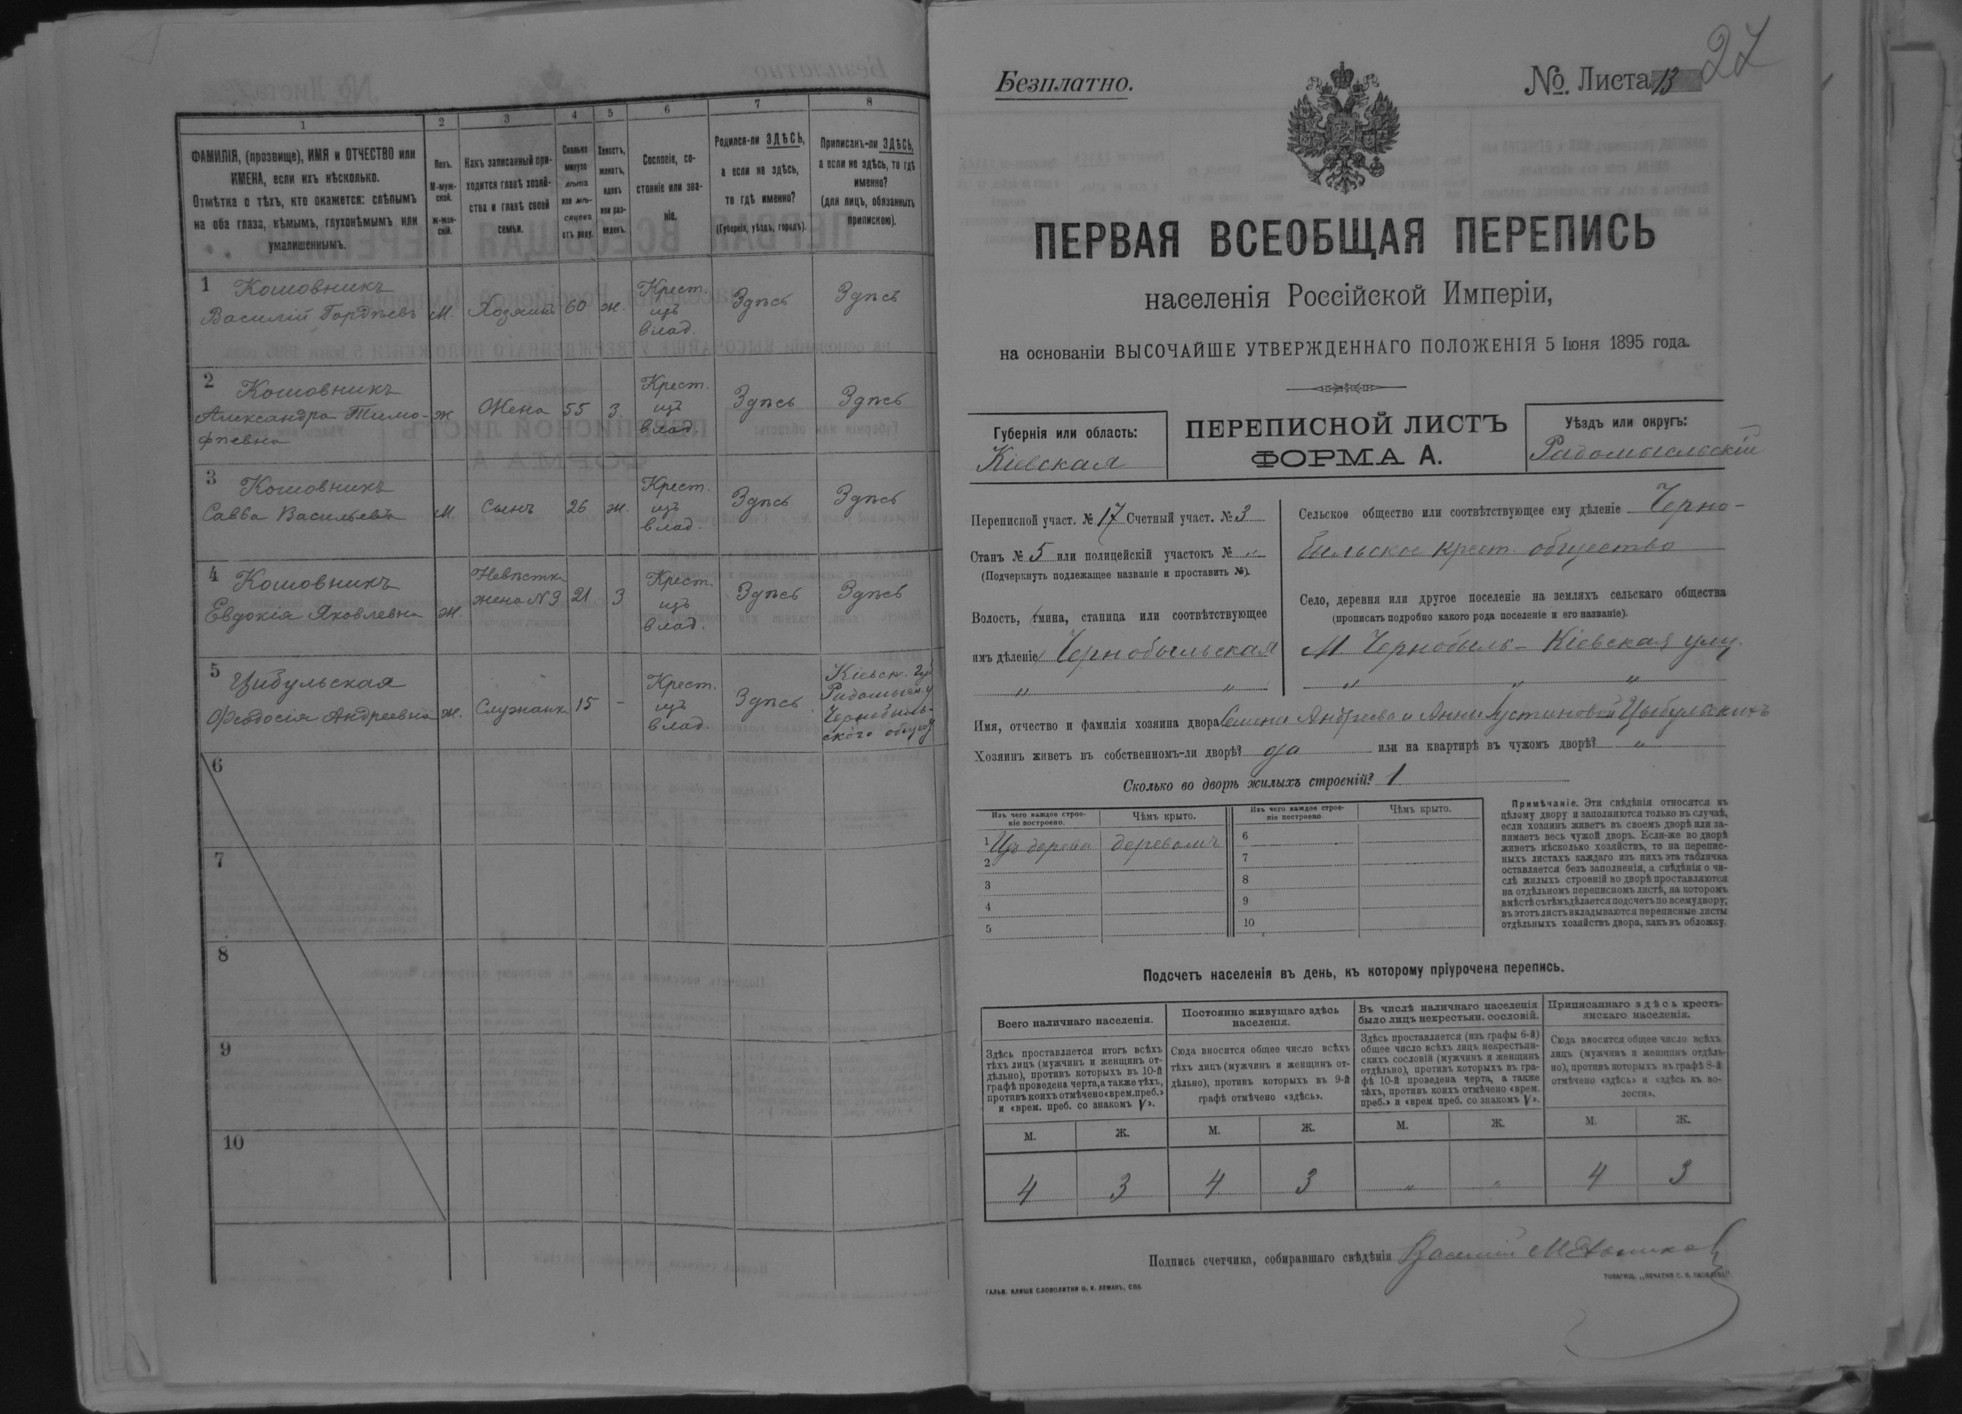 1 2 3 4 5 6 7 8
ФАМИЛІЯ, (прозвище), ИМЯ и ОТЧЕСТВО или
ИМЕНА, если ихъ нѣсколько.
Отмѣтка о тѣхъ, кто окажется: слѣпымъ
на оба глаза, нѣмымъ, глухонѣмымъ или
умалишеннымъ.
Полъ.
М-муж-
ской.
Ж-жен-
скій.
Какъ записанный при-
ходится главѣ хозяй-
ства и главѣ своей
семьи.
Сколько
минуло
лѣтъ
или мѣ-
сяцевъ
отъ роду.
Холостъ,
женатъ,
вдовъ
или раз-
веденъ.
Сословіе, со-
стояніе или зва-
ніе.
Родился-ли ЗДѢСЬ,
а если не здѣсь,
то гдѣ именно?
(Губернія, уѣздъ, городъ).
Приписанъ-ли ЗДѢСЬ,
а если не здѣсь, то гдѣ
именно?
(для лицъ, обязанныхъ
припискою).
1 Кошовникъ
Василій Гордѣевъ м. Хозяинъ 60 ж. Крест. изъ влад. Здѣсь Здѣсь
2 Кошовникъ
Александра Тимо-
фѣевна ж Жена 55 З. Крест. изъ влад. Здѣсь Здѣсь
3 Кошовникъ
Савва Васильевъ м Сынъ 26 ж. Крест. изъ влад. Здѣсь Здѣсь
4 Кошовникъ
Евдокія Яковлевна ж. Невѣстка жена N3 21 З Крест. изъ влад. Здѣсь Здѣсь
5 Цибульская
Ѳеодосія Андреевна ж. Служанка 15 - Крест. изъ влад. Здѣсь Кіевск. губ Радомысл. у Чернобыль-
ского общес
6
7
8
9
10
27
Безплатно.
№. Листа 13
ПЕРВАЯ ВСЕОБЩАЯ ПЕРЕПИСЬ
населенія Россійской Имперіи,
на основаніи ВЫСОЧАЙШЕ УТВЕРЖДЕННАГО ПОЛОЖЕНІЯ 5 Іюня 1895 года.
Губернія или область:
Кіевская
ПЕРЕПИСНОЙ ЛИСТЪ
ФОРМА А.
Уѣздъ или округъ:
Радомысльскій
Переписной участ. № 17 Счетный участ. № 3
Станъ № 5 или полицейскій участокъ № "
(Подчеркнуть подлежащее названіе и проставить №).
Волость, гмина, станица или соотвѣтствующее
имъ дѣленіе Чернобыльская
" "
Сельское общество или соотвѣтствующее ему дѣленіе Черно-
быльское крест. общество
Село, деревня или другое поселеніе на земляхъ сельскаго общества
(прописать подробно какого рода поселеніе и его названіе).
М. Чернобыль - Кіевская улу.
" " "
Имя, отчество и фамилія хозяина двора Семена Андреева и Анны Устиновой Цыбульскихъ
Хозяинъ живетъ въ собственномъ-ли дворѣ? да или на квартирѣ въ чужомъ дворѣ? "
Сколько во дворѣ жилыхъ строеній? 1
Изъ чего каждое строе-
ніе построено.
Чѣмъ крыто.
Изъ чего каждое строе-
ніе построено.
Чѣмъ крыто.
1 Изъ дерева деревомъ 6
2 7
3 8
4 9
5 10
Примѣчаніе. Эти свѣдѣнія относятся къ
цѣлому двору и заполняются только въ случаѣ,
если хозяинъ живетъ въ своемъ дворѣ или за-
нимаетъ весь чужой дворъ. Если-же во дворѣ
живетъ нѣсколько хозяйствъ, то на перепис-
ныхъ листахъ каждаго изъ нихъ эта табличка
оставляется безъ заполненія, а свѣдѣнія о чи-
слѣ жилыхъ строеній во дворѣ проставляются
на отдѣльномъ переписномъ листѣ, на которомъ
вмѣстѣ съ тѣмъ дѣлается подсчетъ по всему двору;
въ этотъ листъ вкладываются переписные листы
отдѣльныхъ хозяйствъ двора, какъ въ обложку.
Подсчетъ населенія въ день, къ которому пріурочена перепись.
Всего наличнаго населенія.
Постоянно живущаго здѣсь
населенія.
Въ числѣ наличнаго населенія
было лицъ некрестьян. сословій.
Приписаннаго здѣсь кресть-
янскаго населенія.
Здѣсь проставляется итогъ всѣхъ
тѣхъ лицъ (мужчинъ и женщинъ от-
дѣльно), противъ которыхъ въ 10-й
графѣ проведена черта, а также тѣхъ,
противъ коихъ отмѣчено «врем. преб.»
и «врем. преб. со знакомъ V».
Сюда вносится общее число всѣхъ
тѣхъ лицъ (мужчинъ и женщинъ от-
дѣльно), противъ которыхъ въ 9-й
графѣ отмѣчено «здѣсь».
Здѣсь проставляется (изъ графы 6-й)
общее число всѣхъ лицъ некрестьян-
скихъ сословій (мужчинъ и женщинъ
отдѣльно), противъ которыхъ въ гра-
фѣ 10-й проведена черта, а также
тѣхъ, противъ коихъ отмѣчено «врем.
преб.» и «врем преб. со знакомъ V».
Сюда вносится общее число всѣхъ
лицъ (мужчинъ и женщинъ отдѣль-
но), противъ которыхъ въ графѣ 8-й
отмѣчено «здѣсь» и «здѣсь къ во-
лости».
М. Ж. М. Ж. М. Ж. М. Ж.
4 3 4 3 " " 4 3
Подпись счетчика, собиравшаго свѣдѣнія Василій Мельников
ГАЛЬВ. КЛИШЕ СЛОВОЛИТНИ О. И. ЛЕМАНЪ, СПБ
ТОВАРИЩ. „ПЕЧАТНЯ С. П. ЯКОВЛЕВА".